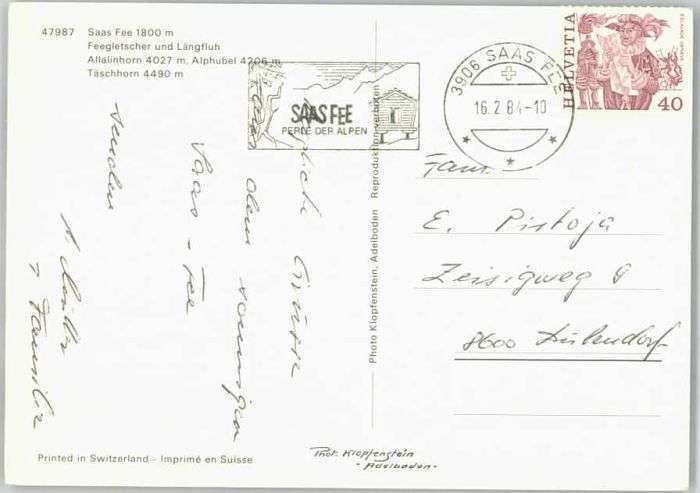 47987 Saas Fee 1800 m
Feegletscher und Längfluh
Allalinhorn 4027 m, Alphubel 4206 m
Täschhorn 4490 m
SAAS FEE
PERLE DER ALPEN
3906 SAAS FEE
16.2.84-10
HELVETIA
40
Grüsse
dem sonnigen
Saas-Fee
senden
A. Müller
+ Familie
Fam.
E. Pistoja
Zeisigweg 8
8600 Dübendorf
Photo Klopfenstein, Adelboden Reproduktion verboten
Printed in Switzerland – Imprimé en Suisse
Phot. Klopfenstein
- Adelboden -